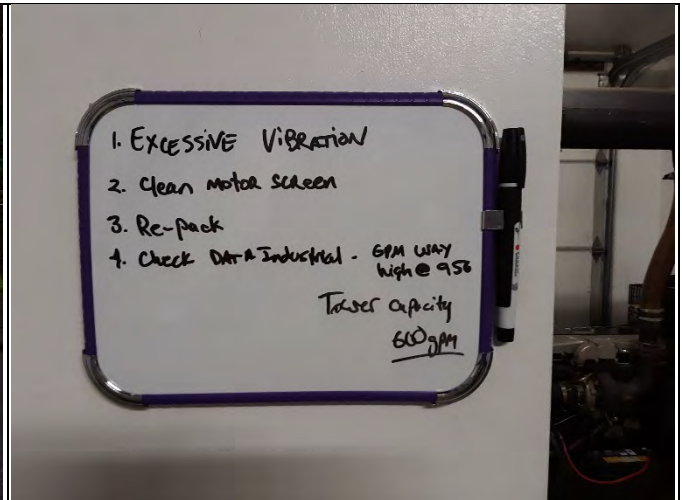 1. EXCESSIVE VIBRATION
2. Clean Motor Screen
3. Re-pack
4. Check DATA Industrial - GPM WAY
high @ 956
Tower capacity
600 gpm